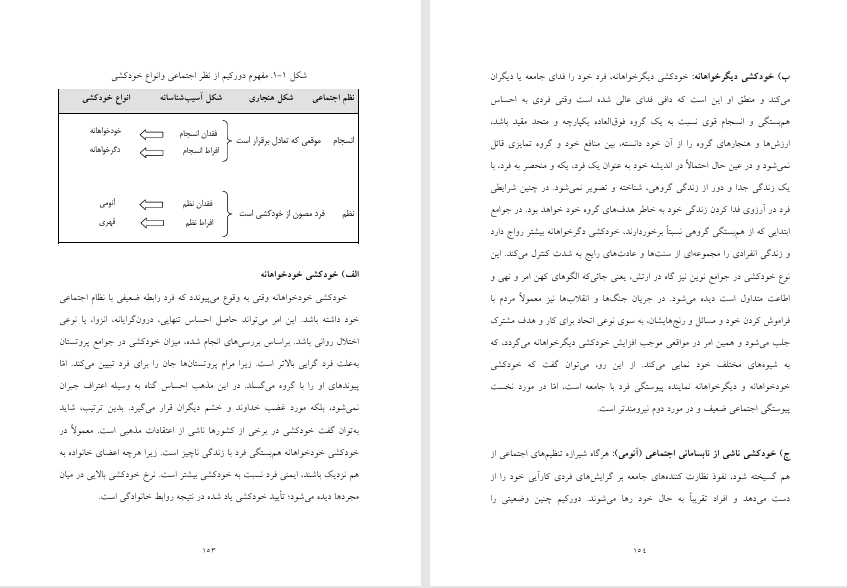 شکل ۱-۱. مفهوم دورکیم از نظر اجتماعی وانواع خودکشی
نظم اجتماعی شکل هنجاری شکل آسیب‌شناسانه انواع خودکشی
انسجام موقعی که تعادل برقرار است فقدان انسجام خودخواهانه
افراط انسجام دگرخواهانه
نظم فرد مصون از خودکشی است فقدان نظم آنومی
افراط نظم قهری
الف) خودکشی خودخواهانه
خودکشی خودخواهانه وقتی به وقوع می‌پیوندد که فرد رابطه ضعیفی با نظام اجتماعی
خود داشته باشد. این امر می‌تواند حاصل احساس تنهایی، درون‌گرایانه، انزوا، یا نوعی
اختلال روانی باشد. براساس بررسی‌های انجام شده، میزان خودکشی در جوامع پروتستان
به‌علت فرد گرایی بالاتر است. زیرا مرام پروتستان‌ها جان را برای فرد تبیین می‌کند. امّا
پیوندهای او را با گروه می‌گسلد. در این مذهب احساس گناه به وسیله اعتراف جبران
نمی‌شود، بلکه مورد غضب خداوند و خشم دیگران قرار می‌گیرد. بدین ترتیب، شاید
به‌توان گفت خودکشی در برخی از کشورها ناشی از اعتقادات مذهبی است. معمولاً در
خودکشی خودخواهانه هم‌بستگی فرد با زندگی ناچیز است. زیرا هرچه اعضای خانواده به
هم نزدیک باشند، ایمنی فرد نسبت به خودکشی بیشتر است. نرخ خودکشی بالایی در میان
مجردها دیده می‌شود؛ تأیید خودکشی یاد شده در نتیجه روابط خانوادگی است.
۱۵۳
ب) خودکشی دیگرخواهانه: خودکشی دیگرخواهانه، فرد خود را فدای جامعه یا دیگران
می‌کند و منطق او این است که دافی فدای عالی شده است وقتی فردی به احساس
هم‌بستگی و انسجام قوی نسبت به یک گروه فوق‌العاده یکپارچه و متحد مقید باشد،
ارزش‌ها و هنجارهای گروه را از آن خود دانسته، بین منافع خود و گروه تمایزی قائل
نمی‌شود و در عین حال احتمالاً در اندیشه خود به عنوان یک فرد، یکه و منحصر به فرد، با
یک زندگی جدا و دور از زندگی گروهی، شناخته و تصویر نمی‌شود. در چنین شرایطی
فرد در آرزوی فدا کردن زندگی خود به خاطر هدف‌های گروه خود خواهد بود. در جوامع
ابتدایی که از هم‌بستگی گروهی نسبتاً برخوردارند، خودکشی دگرخواهانه بیشتر رواج دارد
و زندگی انفرادی را مجموعه‌ای از سنت‌ها و عادت‌های رایج به شدت کنترل می‌کند. این
نوع خودکشی در جوامع نوین نیز گاه در ارتش، یعنی جائی‌که الگوهای کهن امر و نهی و
اطاعت متداول است دیده می‌شود. در جریان جنگ‌ها و انقلاب‌ها نیز معمولاً مردم با
فراموش کردن خود و مسائل و رنج‌هایشان، به سوی نوعی اتحاد برای کار و هدف مشترک
جلب می‌شود و همین امر در مواقعی موجب افزایش خودکشی دیگرخواهانه می‌گردد، که
به شیوه‌های مختلف خود نمایی می‌کند. از این رو، می‌توان گفت که خودکشی
خودخواهانه و دیگرخواهانه نماینده پیوستگی فرد با جامعه است، امّا در مورد نخست
پیوستگی اجتماعی ضعیف و در مورد دوم نیرومندتر است.
ج) خودکشی ناشی از نابسامانی اجتماعی (آنومی): هرگاه شیرازه تنظیم‌های اجتماعی از
هم گسیخته شود، نفوذ نظارت کننده‌های جامعه بر گرایش‌های فردی کارآیی خود را از
دست می‌دهد و افراد تقریباً به حال خود رها می‌شوند. دورکیم چنین وضعیتی را
۱۵۴